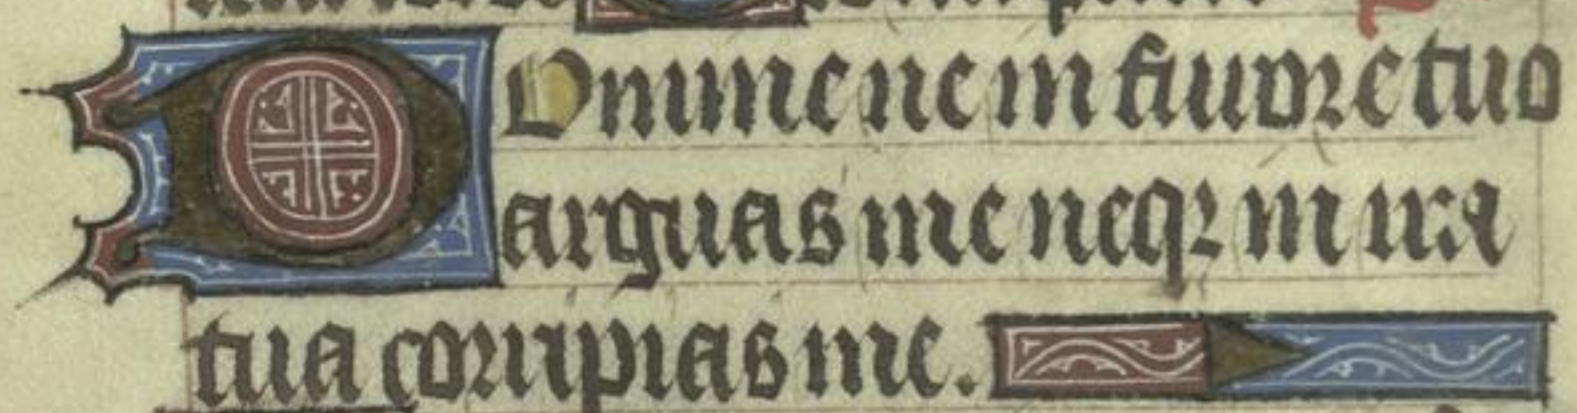 Domine ne in furore tuo
arguas me neqꝫ in ira
tua corripias me.